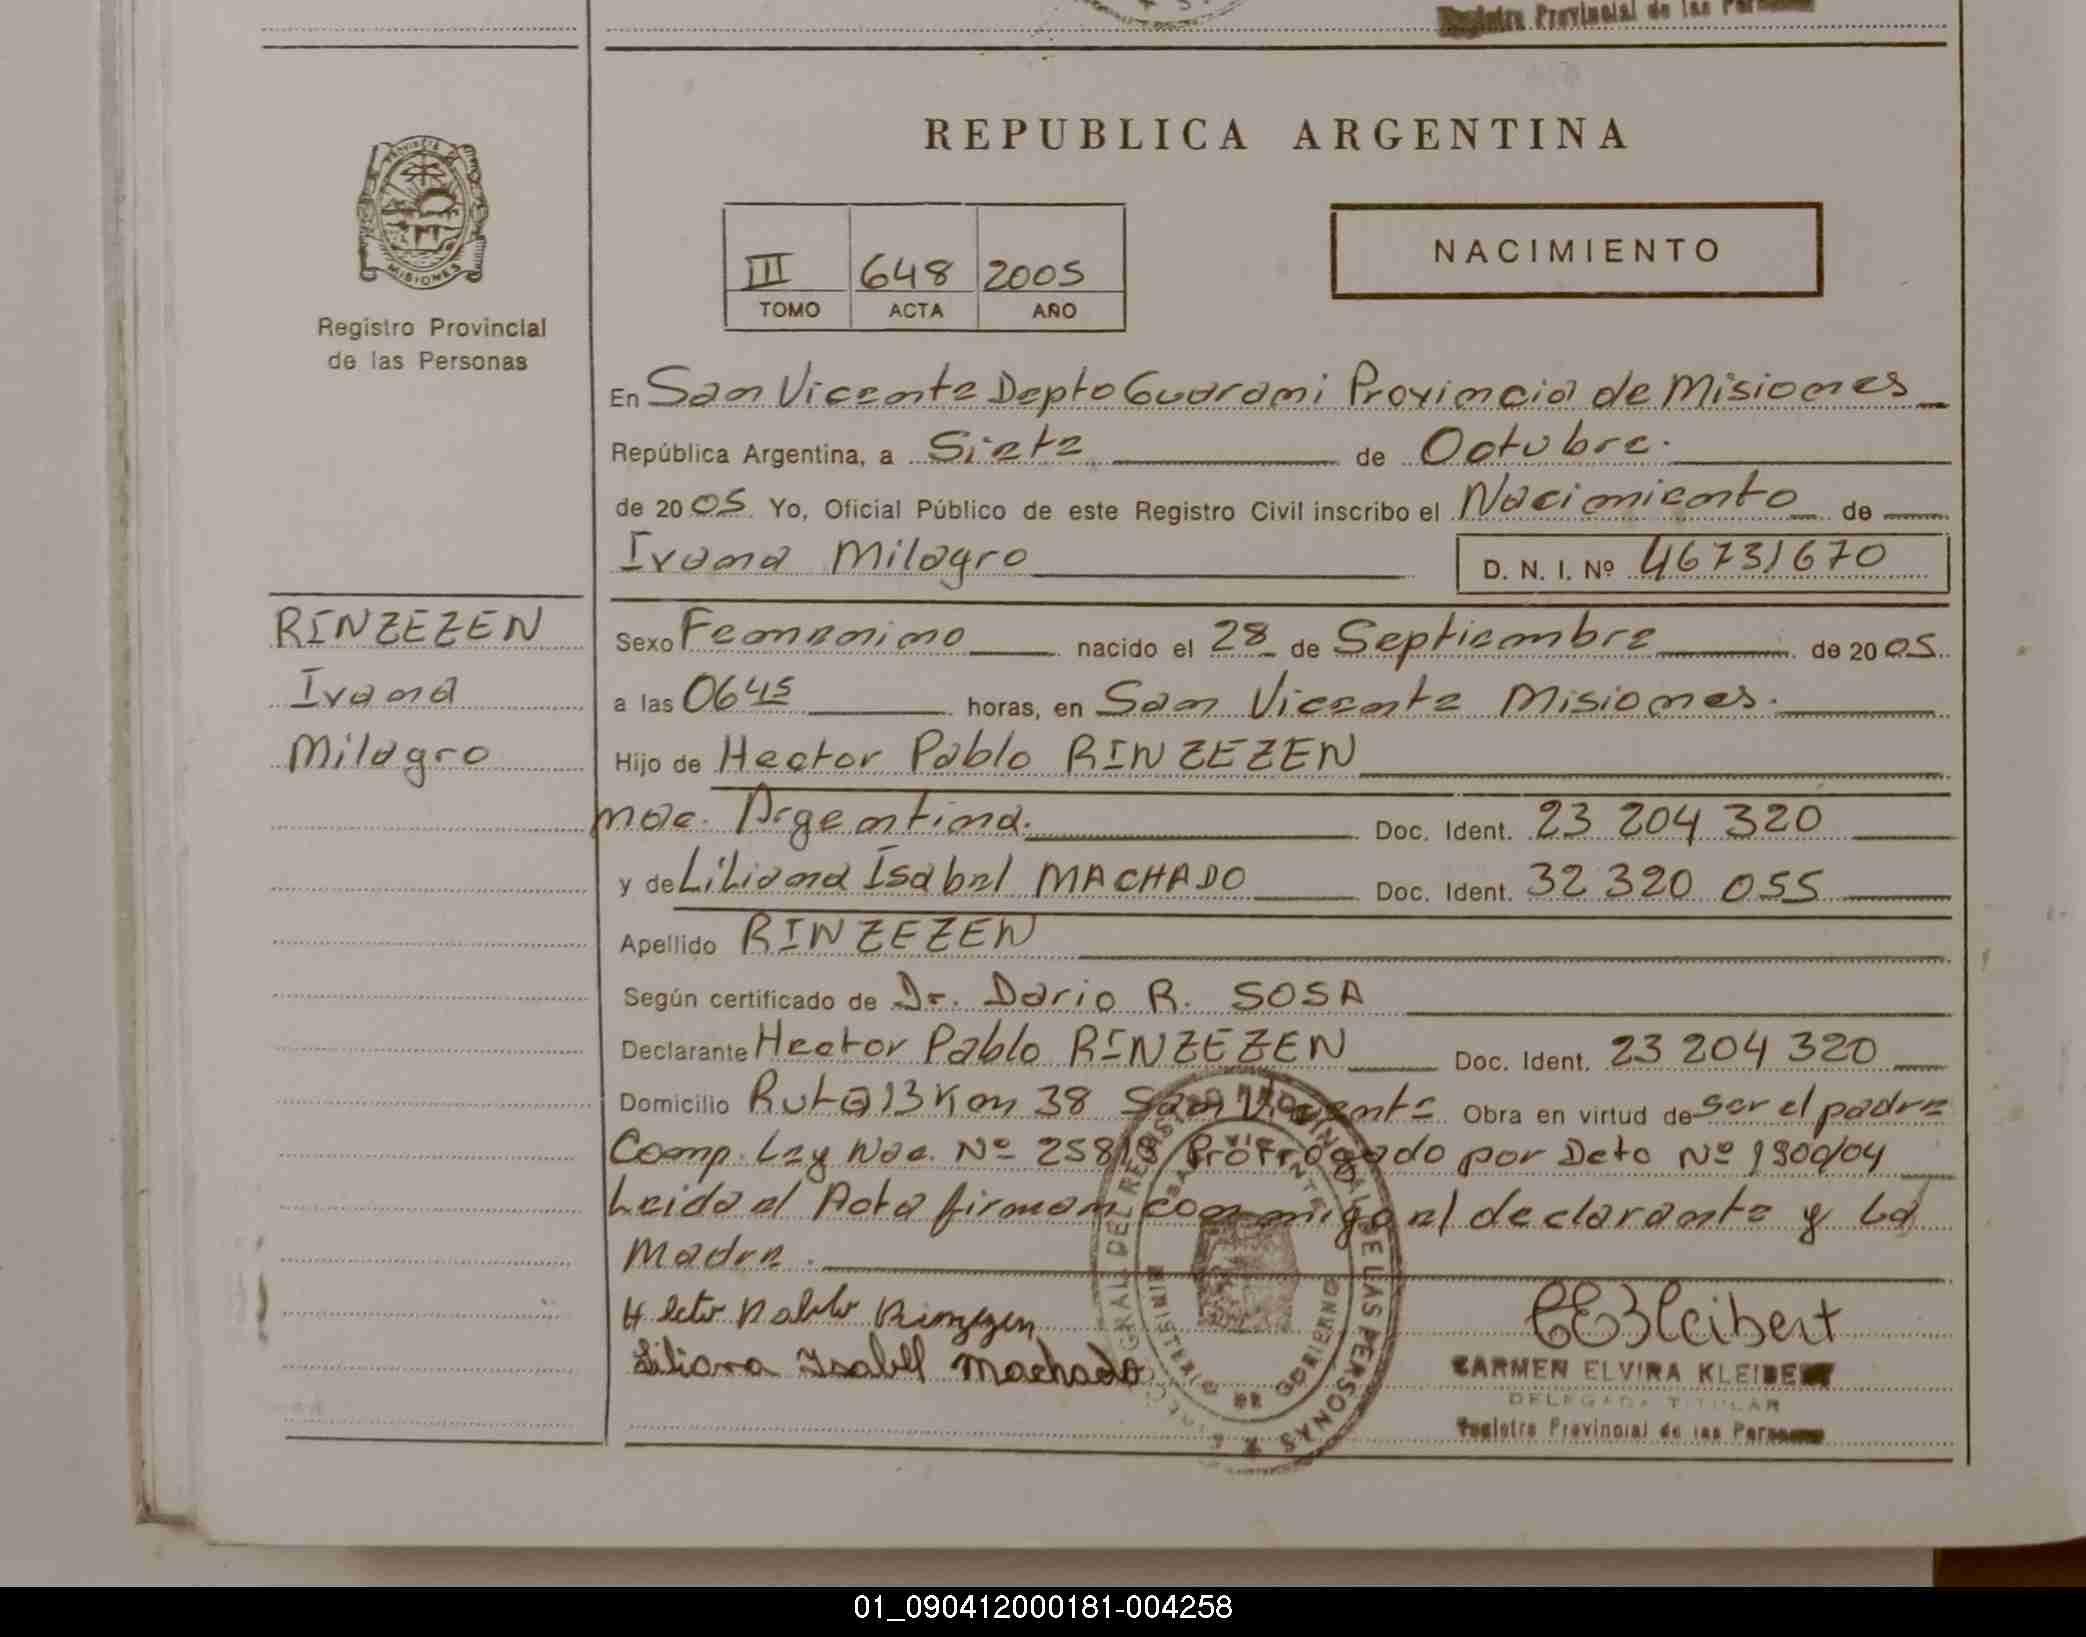 Registro Provincial de las Personas
REPUBLICA ARGENTINA
PROVINCIA
MISIONES
Registro Provincial
de las Personas
III 648 2005
TOMO ACTA AÑO
NACIMIENTO
En San Vicente Depto Guarani Provincia de Misiones
República Argentina, a Siete de Octubre.
de 2005 Yo, Oficial Público de este Registro Civil inscribo el Nacimiento de
Ivana Milagro D. N. I. Nº 46731670
RINZEZEN
Ivana
Milagro
Sexo Femenino nacido el 28 de Septiembre de 2005
a las 0645 horas, en San Vicente Misiones.
Hijo de Hector Pablo RINZEZEN
nac. Argentina. Doc. Ident. 23 204 320
y de Liliana Isabel MACHADO Doc. Ident. 32 320 055
Apellido RINZEZEN
Según certificado de Dr. Dario R. SOSA
Declarante Hector Pablo RINZEZEN Doc. Ident. 23 204 320
Domicilio Ruta 13 Km 38 San Vicente Obra en virtud de ser el padre
Comp. Ley Nac. Nº 25819 Prorrogado por Dcto Nº 1900/04
Leida el Acta firman conmigo el declarante y La
Madre.
Hector Pablo Rinzezen
Liliana Isabel Machado
CEKleibert
CARMEN ELVIRA KLEIBERT
DELEGADA TITULAR
Registro Provincial de las Personas
GRAL. DEL REGISTRO PROVINCIAL DE LAS PERSONAS
SAN VICENTE
MINISTERIO DE GOBIERNO
01_090412000181-004258